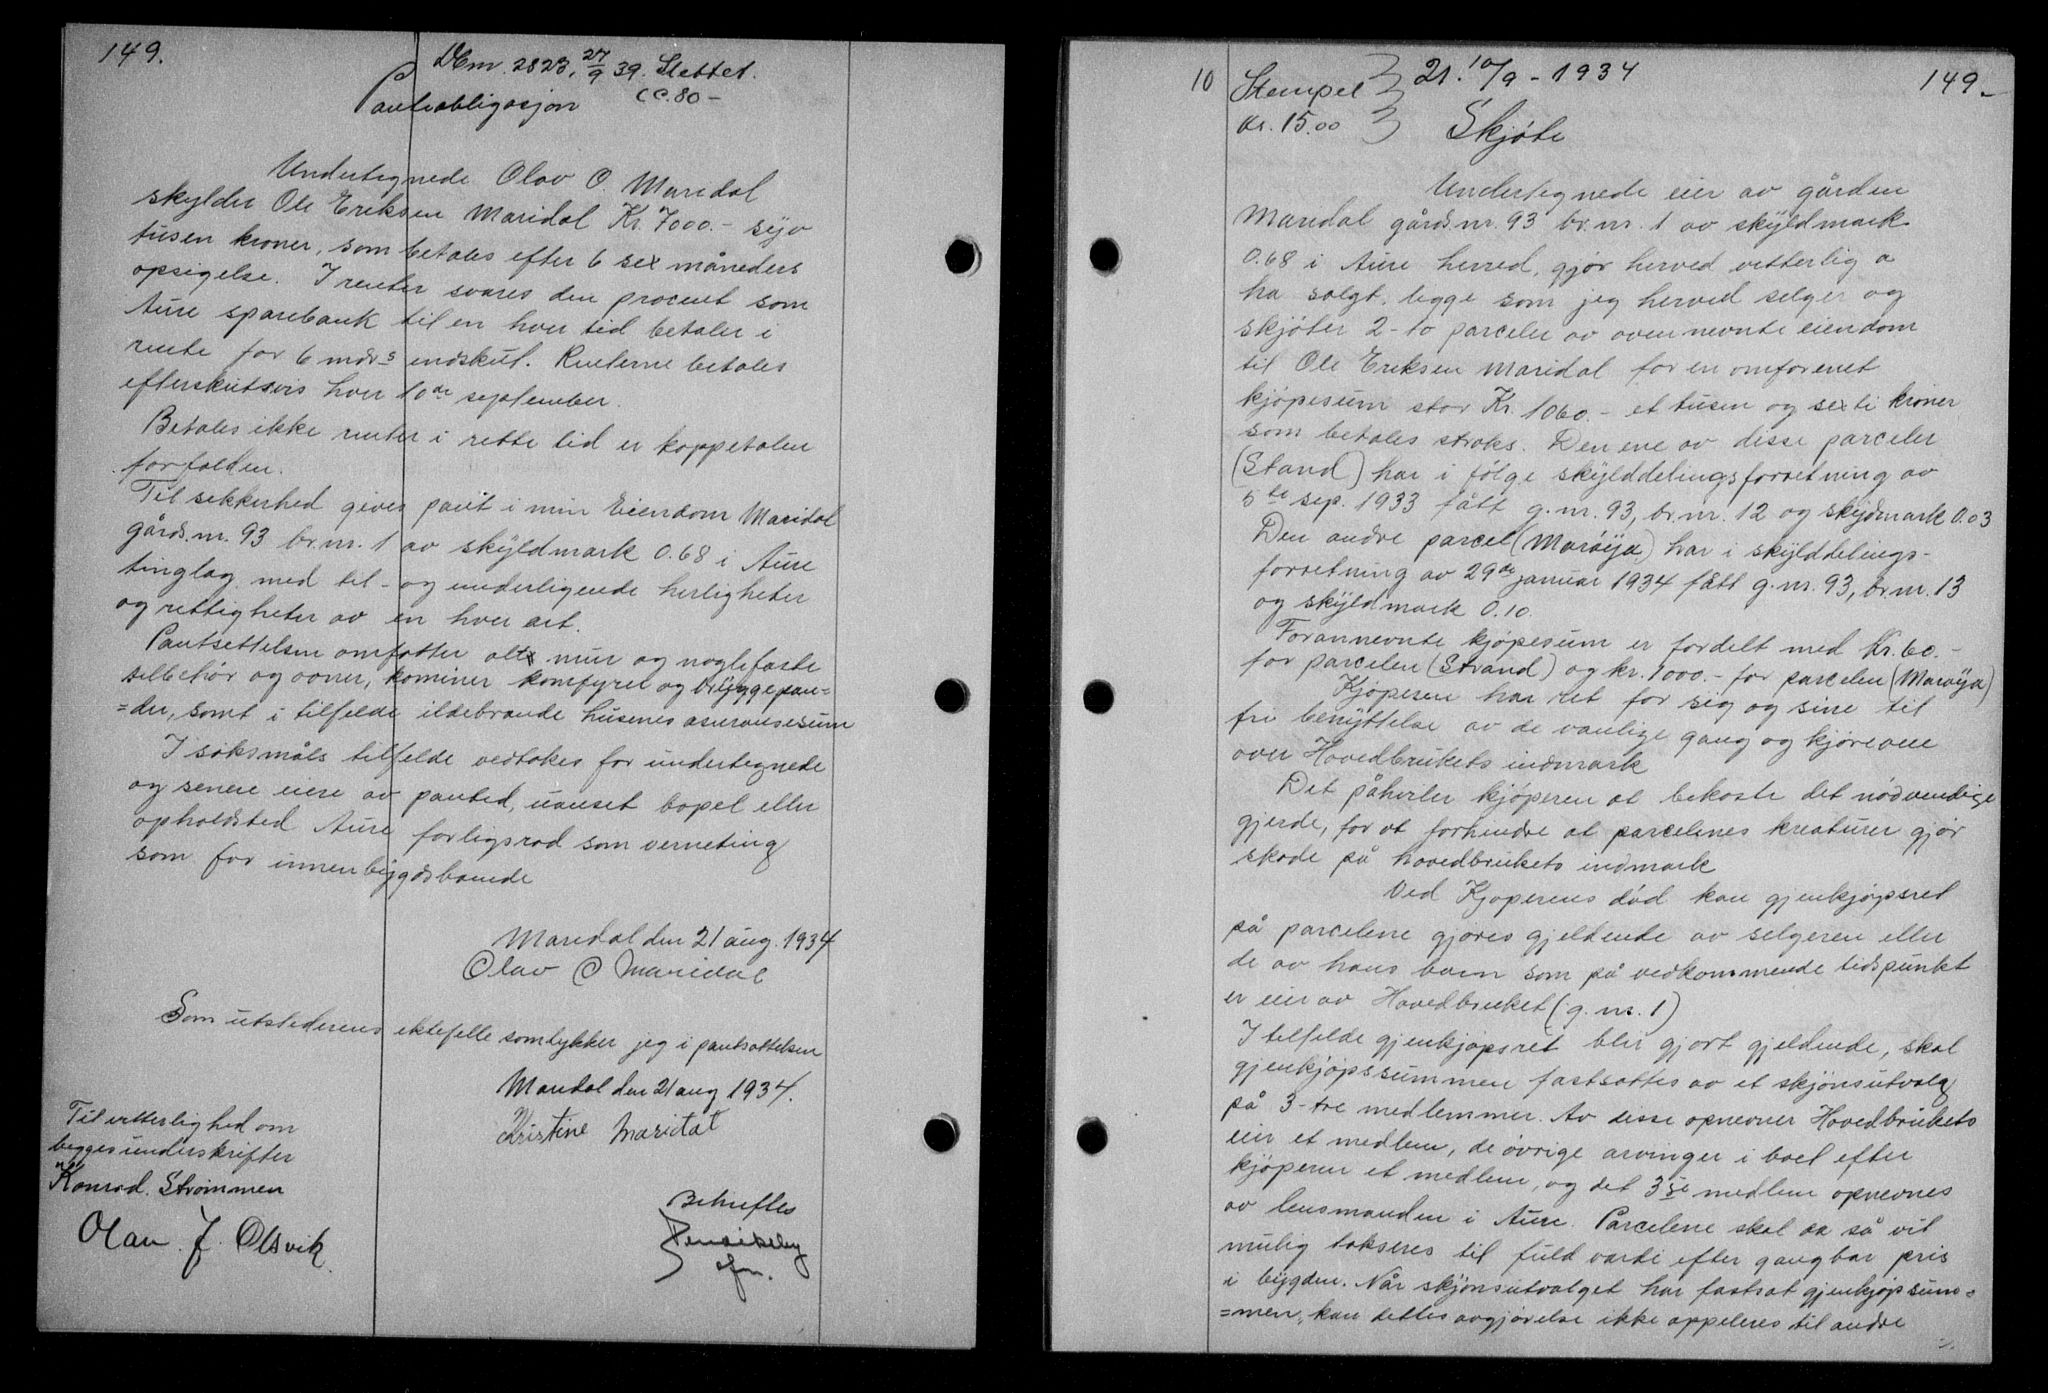 149.
2823, 27/9 39. Slettet.
Pantobligasjon
Undertegnede Olav O. Maridal
skylder Ole Eriksen Maridal Kr. 7000.- syv
tusen kroner, som betales efter 6 sex måneders
opsigelse. I renter svares den procent som
Aure sparebank til en hver tid betaler i
rente for 6 mdrs indskut. Renterne betales
efterskutsvis hver 10de september.
Betales ikke renter i rette tid er kappetalen
forfalden.
Til sikkerhed gives pant i min Eiendom Maridal
gårds.nr. 93 br.nr. 1 av skyldmark 0.68 i Aure
tinglag med til- og underligende herligheter
og rettigheter av en hver art.
Pantsettelsen omfatter alt mur og naglefaste
tilbehør og ovner, kominer komfyrer og bryggepan=
=der, samt i tilfelde ildebrande husenes asuransesum
I søksmåls tilfelde vedtakes for undertegnede
og senere eiere av panted, uanset bopel eller
opholdsted Aure forligsrad som verneting
som for innenbygdsboende
Maridal den 21 aug. 1934
Olav O Maridal
Som utstederens ektefelle samtykker jeg i pantsattelsen
Maridal den 21 aug 1934.
Kristine Maridal
Til vitterlighed om
begges underskrifter
Konrad. Strømmen
Olav J. Olsvik
Bekreftes
10
Stempel
kr. 15.00
21. 10/9 - 1934
149
Skjøte
Undertegnede eier av gården
Maridal gårds.nr. 93 br.nr. 1 av skyldmark
0.68 i Aure herred, gjør herved vitterlig a
ha solgt, ligge som jeg herved selger og
skjøter 2-to parceler av ovennevnte eiendom
til Ole Eriksen Maridal for en omforenet
kjøpesum stor Kr. 1060.- et tusen og sexti kroner
som betales straks. Den ene av disse parceler
(Stand) har i følge skylddelingsforretning av
5te sep. 1933 fått g.nr. 93, br.nr. 12 og skydmark 0.03
Den andre parcel (Marøya) har i skylddelings-
forretning av 29de januar 1934 fått g.nr. 93, br.nr. 13
og skyldmark 0.10.
Forannevnte kjøpesum er fordelt med kr. 60.-
for parcelen (Strand) og kr. 1000.- for parcelen (Marøya)
Kjøperen har ret for sig og sine til
fri benyttelse av de vanlige gang og kjøreveie
over Hovedbrukets indmark
Det påhviler kjøperen at bekoste det nødvendige
gjerde, for at forhindre at parcelenes kreaturer gjør
skade på hovedbrukets indmark
Ved Kjøperens død kan gjenkjøpsret
på parcelene gjøres gjeldende av selgeren eller
de av hans barn som på vedkommende tidspunkt
er eier av Hovedbruket (g. nr. 1)
I tilfelde gjenkjøpsret blir gjort gjeldende, skal
gjenkjøpssummen fastsattes av et skjønsutvalg
på 3-tre medlemmer. Av disse opnevner Hovedbrukets
eier et medlem, de øvrige arvinger i boet efter
kjøperen et medlem, og det 3je medlem opnevnes
av lensmanden i Aure. Parcelene skal så vit
mulig takseres til fuld værdi efter gangbar pris
i bygden. Når skjønsutvalget har fastsat gjenkjøpsum=
=men, kan dettes avgjørelse ikke appeleres til andre